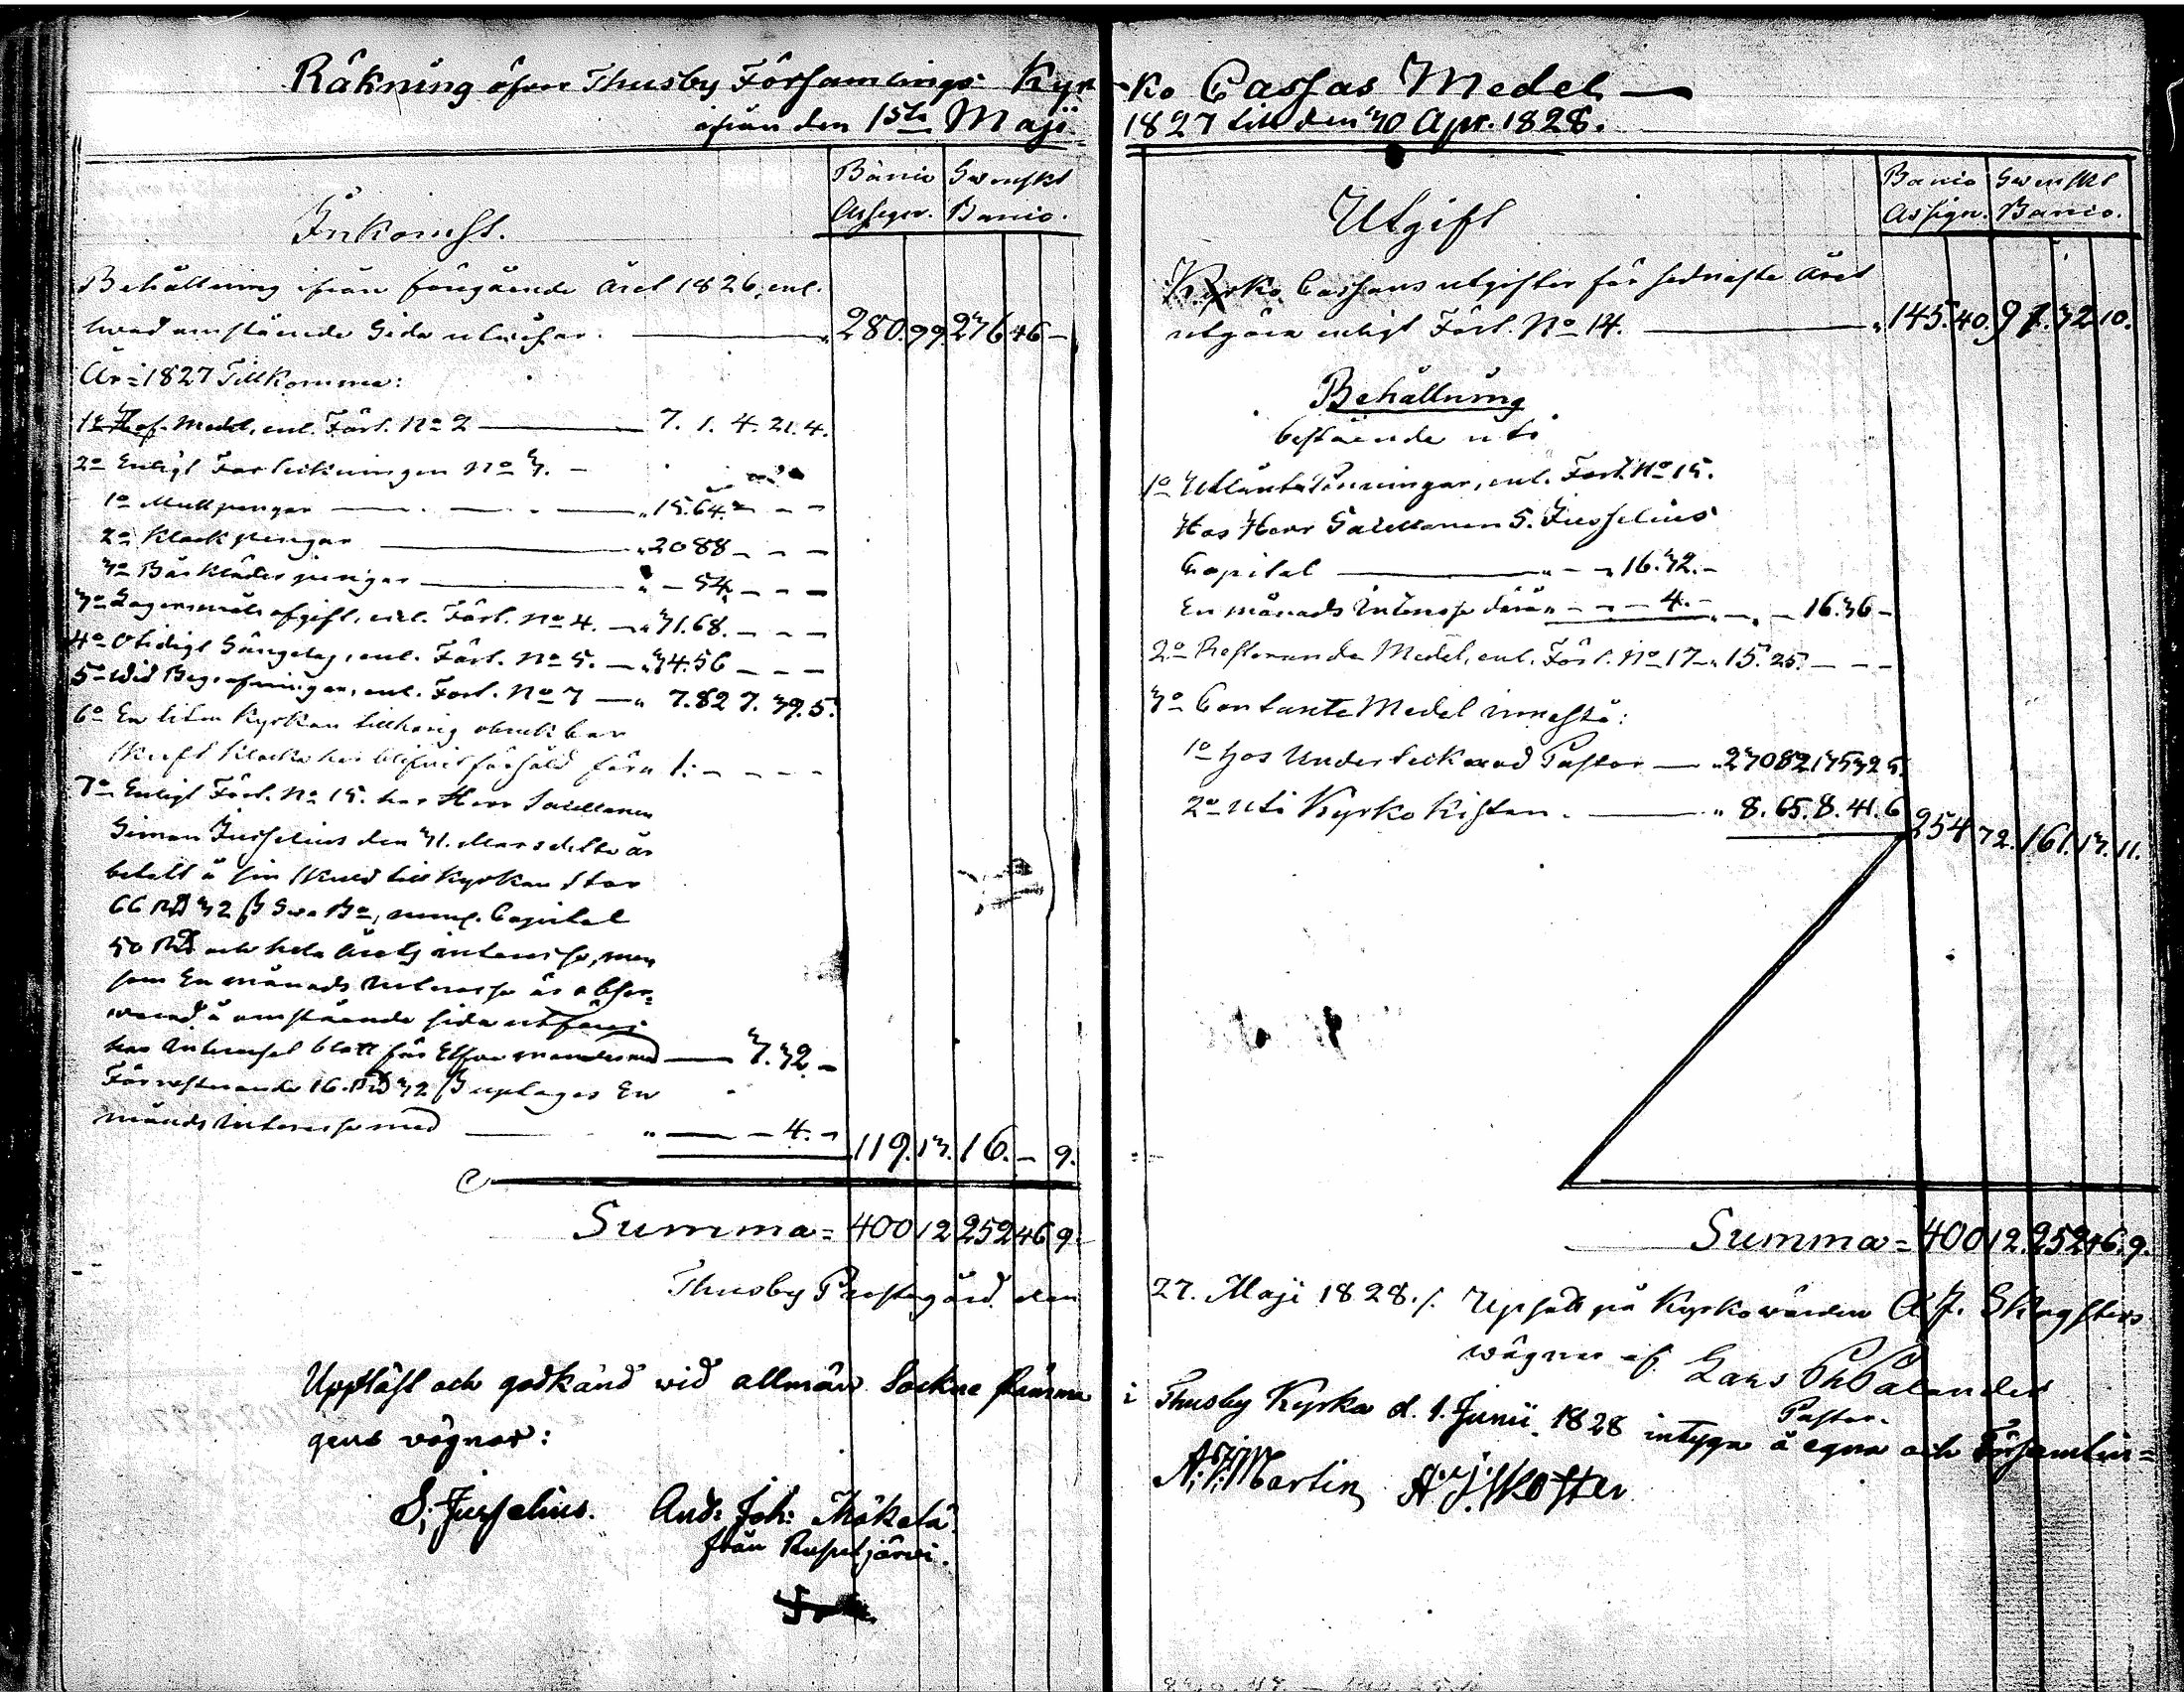 Räkning öfver Thusby Församlings Kyr-
ifrån den 1sta Maji
Banco Swenskt
Assign. Banco.
Inkomst.
Behållning ifrån föregående året 1826, enl.
hvad omstående Sida utwisar. 280.99. 236 46 –
År 1827 Tillkomma:
1o Haf. Medel, enl. Förl. No 2 7. 1. 4. 21. 4.
2o Enligt Förteckningen No 3.
1o Mullpengar 15.64. – – –
2o Klockpengar 20 88 – – –
3o Bårklädespengar – 54. – – –
3o Lagersmåls afgift, enl. Förl. No 4. 31.68. – – –
4o Otidigt Sängelag, enl. Förl. No 5. 34.56 – – –
5o Wid Begrafningar, enl. Förl. No 7 7.82 7. 39. 5.
6o En liten Kyrkan tillhörig obrukbar
Klocka har blifvit försåld före 1. – – – –
7o Enligt Förl. No 15. har Herr
Simon Jusselius den 31. Mars detta år
betalt å sin skuld till Kyrkan stor
66 Rd 32 ß Sw. Bo, Capital
50 Rd och hela årets interesse, men
som En månads Interesse är obser-
werad å omstående sida
har Interesset blott för Elfva månader med 3.32. –
För resterande 16. Rd 32 ß uptages En
månads Interesse med – 4. –
119. 13. 16. – 9.
Summa = 400 12 252 46 9.
Thusby Prestegård den
Uppläst och godkänd wid allmän Sockne stämma
gens vägnar:
S. Jusselius. And: Joh: Mäkelä
från Rusutjärvi.
ko Cassas Medel
1827 till den 30 Apr. 1828.
Banco Swenskt
Assign. Banco.
Utgift
Kyrko Cassans utgifter för sednaste året
utgöra enligt Förl. No 14. 145. 40. 91. 32 10.
Behållning
bestående uti
1o Utlånta Penningar, enl. Förl. No 15.
Hos Herr S. Jusselius
Capital 16. 32. –
En månads Interesse därå – 4. – 16. 36 –
2o Resterande Medel, enl. Förl. No 17 15. 25. – – –
3o Contante Medel innestå:
1o hos Undertecknad Pastor 230 82 135 32 5.
2o uti Kyrko Kistan 8. 65. 8. 41. 6
254 72. 161. 13. 11.
Summa = 400 12. 252 46. 9.
27. Maji 1828. Upsatt på Kyrkowärden A. J. Skogsters
wägnar af Lars Ph Palander
Pastor.
i Thusby Kyrka d. 1. Junii 1828 intyga å egna och Församlin=
A. Martin A. J. Skogster